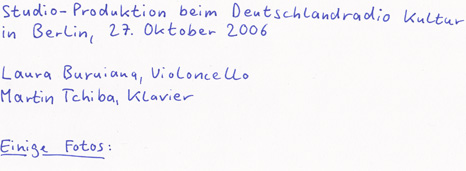 Studio-Produktion beim Deutschlandradio Kultur
in Berlin, 27. Oktober 2006
Laura Buruiana, Violoncello
Martin Tchiba, Klavier
Einige Fotos: